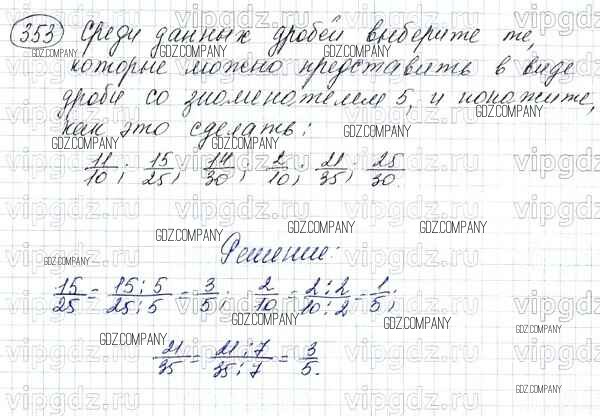 353 Среди данных дробей выберите те,
которые можно представить в виде
дроби со знаменателем 5, и покажите,
как это сделать:
11/10; 15/25; 14/30; 2/10; 21/35; 25/30.
Решение:
15/25 = 15:5/25:5 = 3/5; 2/10 = 2:2/10:2 = 1/5;
21/35 = 21:7/35:7 = 3/5.